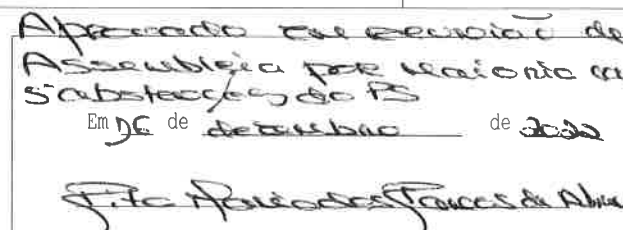 Aprovado em reunião de
Assembleia por maioria co
5 abstenções do PS
Em 26 de dezembro de 2022
Rita Maria dos Prazeres de Abreu